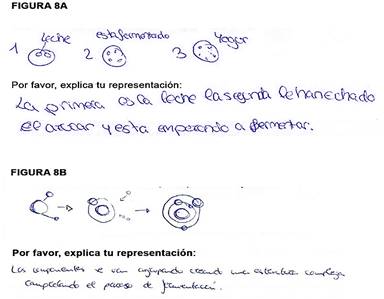 FIGURA 8A
1 leche 2 esta fermentado 3 Yogur
Por favor, explica tu representación:
La primera es la leche la segunda le han echado
el azucar y esta empezando a fermentar.
FIGURA 8B
Por favor, explica tu representación:
Los componentes se van agrupando creando una estructura compleja
completando el proceso de fermentación.